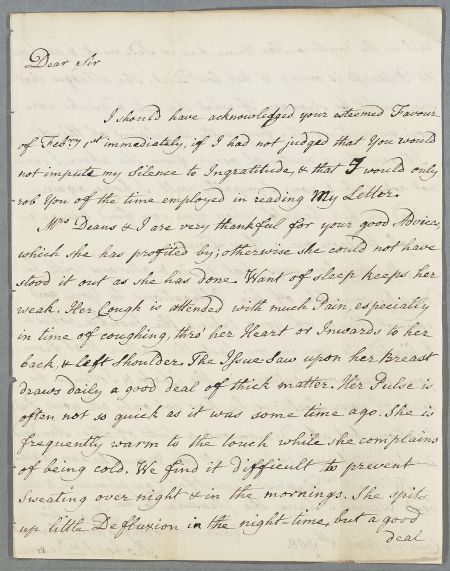 Dear Sir
I should have acknowledged your esteemed Favour
of Febry 1st immediately, if I had not judged that You would
not impute my Silence to Ingratitude, & that I would only
rob You of the time employed in reading My Letter.
Mrs Deans & I are very thankful for your good Advices,
which she has profited by; otherwise she could not have
stood it out as she has done. Want of sleep keeps her
weak. Her Cough is attended with much Pain, especially
in time of coughing, thro' her Heart or Inwards to her
back, & left Shoulder. The Issue Saw upon her Breast
draws daily a good deal of thick matter. Her Pulse is
often not so quick as it was some time ago. She is
frequently warm to the touch while she complains
of being cold. We find it difficult to prevent
Sweating over night & in the mornings. She spits
up little Defluxion in the night-time, but a good
deal